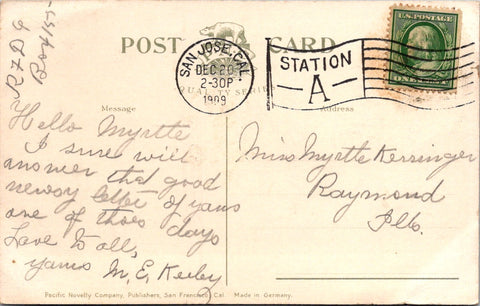 R F D 9
Box 155-
POST CARD
SAN JOSE, CAL.
DEC 20
2-30P
1909
STATION
A
U.S. POSTAGE
ONE CENT
QUALITY SERIES
Message
Address
Hello Myrtle
I sure will
answer that good
newsy letter of yours
one of thoes days
Love to all,
yours M. E. Keeley
Miss Myrtle Kerringer
Raymond
Ills.
Pacific Novelty Company, Publishers, San Francisco, Cal. Made in Germany.